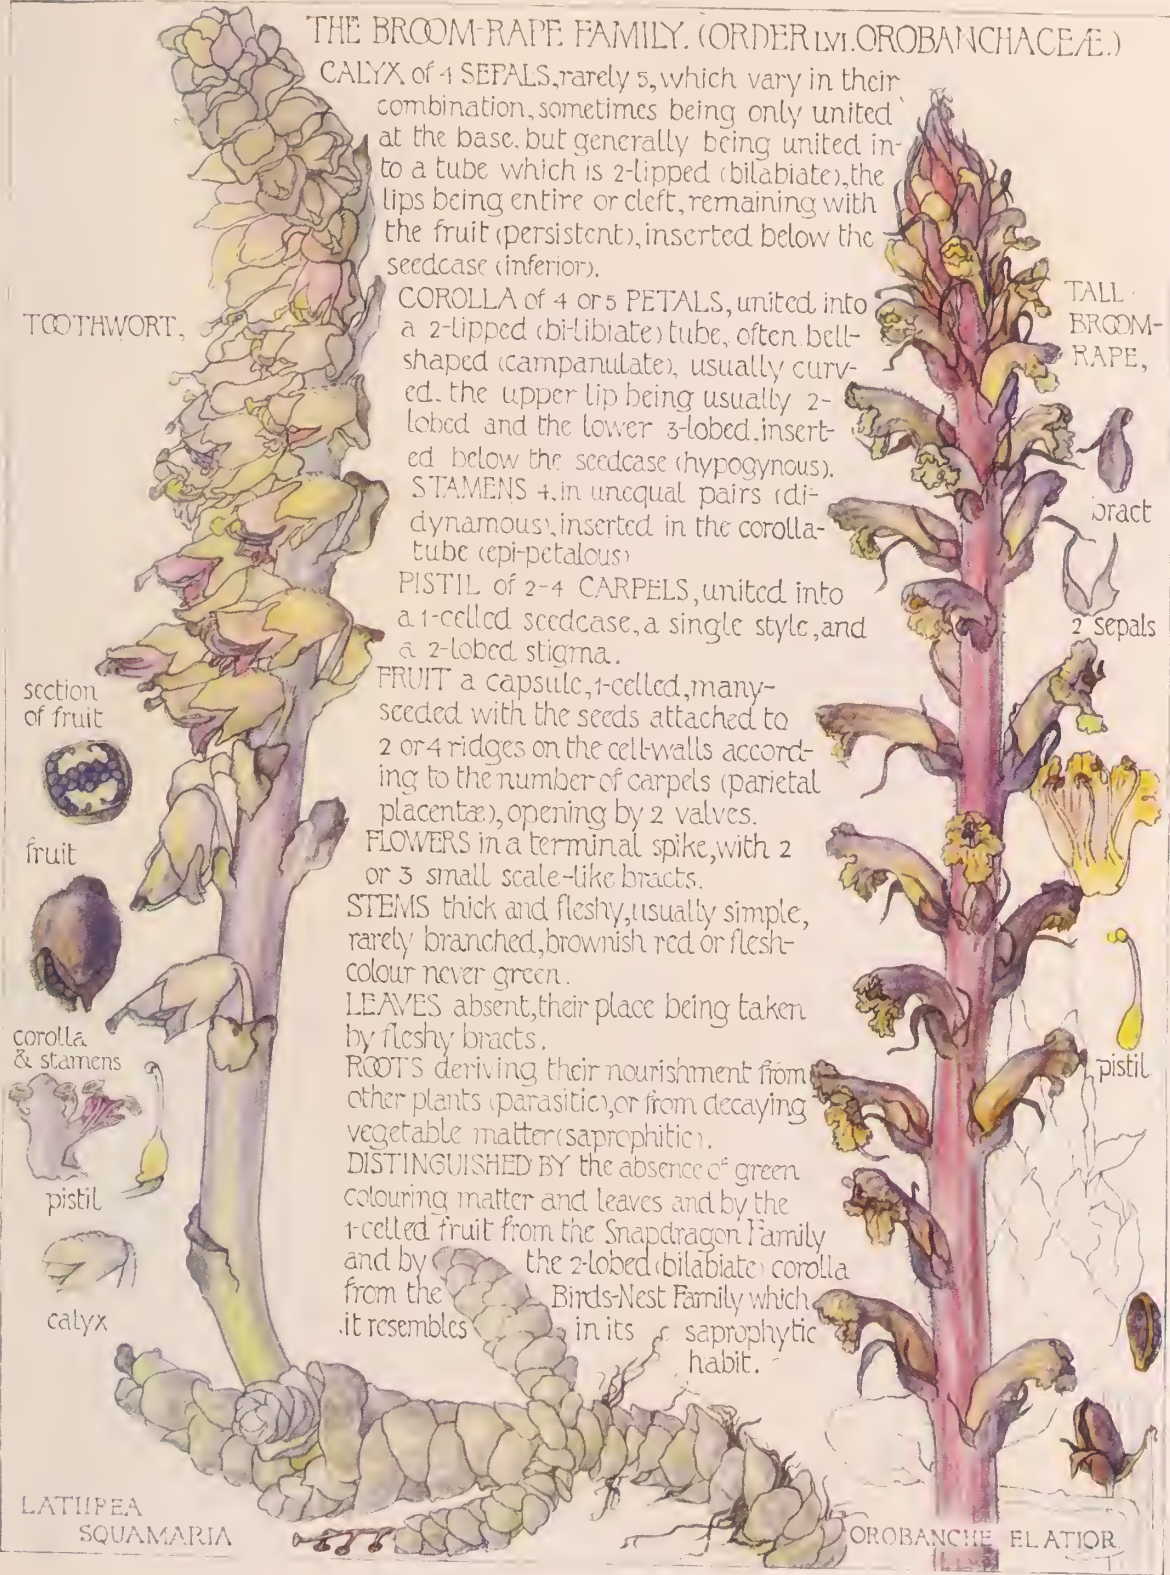 THE BROOM-RAPE FAMILY. (ORDER LVI. OROBANCHACEÆ.)
CALYX of 4 SEPALS, rarely 5, which vary in their
combination, sometimes being only united
at the base, but generally being united in-
to a tube which is 2-lipped (bilabiate), the
lips being entire or cleft, remaining with
the fruit (persistent), inserted below the
seedcase (inferior).
COROLLA of 4 or 5 PETALS, united into
a 2-lipped (bi-libiate) tube, often bell-
shaped (campanulate), usually curv-
ed, the upper lip being usually 2-
lobed and the lower 3-lobed, insert-
ed below the seedcase (hypogynous).
STAMENS 4, in unequal pairs (di-
dynamous), inserted in the corolla-
tube (epi-petalous)
PISTIL of 2-4 CARPELS, united into
a 1-celled seedcase, a single style, and
a 2-lobed stigma.
FRUIT a capsule, 1-celled, many-
seeded with the seeds attached to
2 or 4 ridges on the cell-walls accord-
ing to the number of carpels (parietal
placentæ), opening by 2 valves.
FLOWERS in a terminal spike, with 2
or 3 small scale-like bracts.
STEMS thick and fleshy, usually simple,
rarely branched, brownish red or flesh-
colour never green.
LEAVES absent, their place being taken
by fleshy bracts.
ROOTS deriving their nourishment from
other plants (parasitic), or from decaying
vegetable matter (saprophitic).
DISTINGUISHED BY the absence of green
colouring matter and leaves and by the
1-celled fruit from the Snapdragon Family
and by the 2-lobed (bilabiate) corolla
from the Birds-Nest Family which
it resembles in its saprophytic
habit.
TOOTHWORT,
section
of fruit
fruit
corolla
& stamens
pistil
calyx
LATHREA
SQUAMARIA
TALL
BROOM-
RAPE,
bract
2 sepals
pistil
OROBANCHE ELATIOR